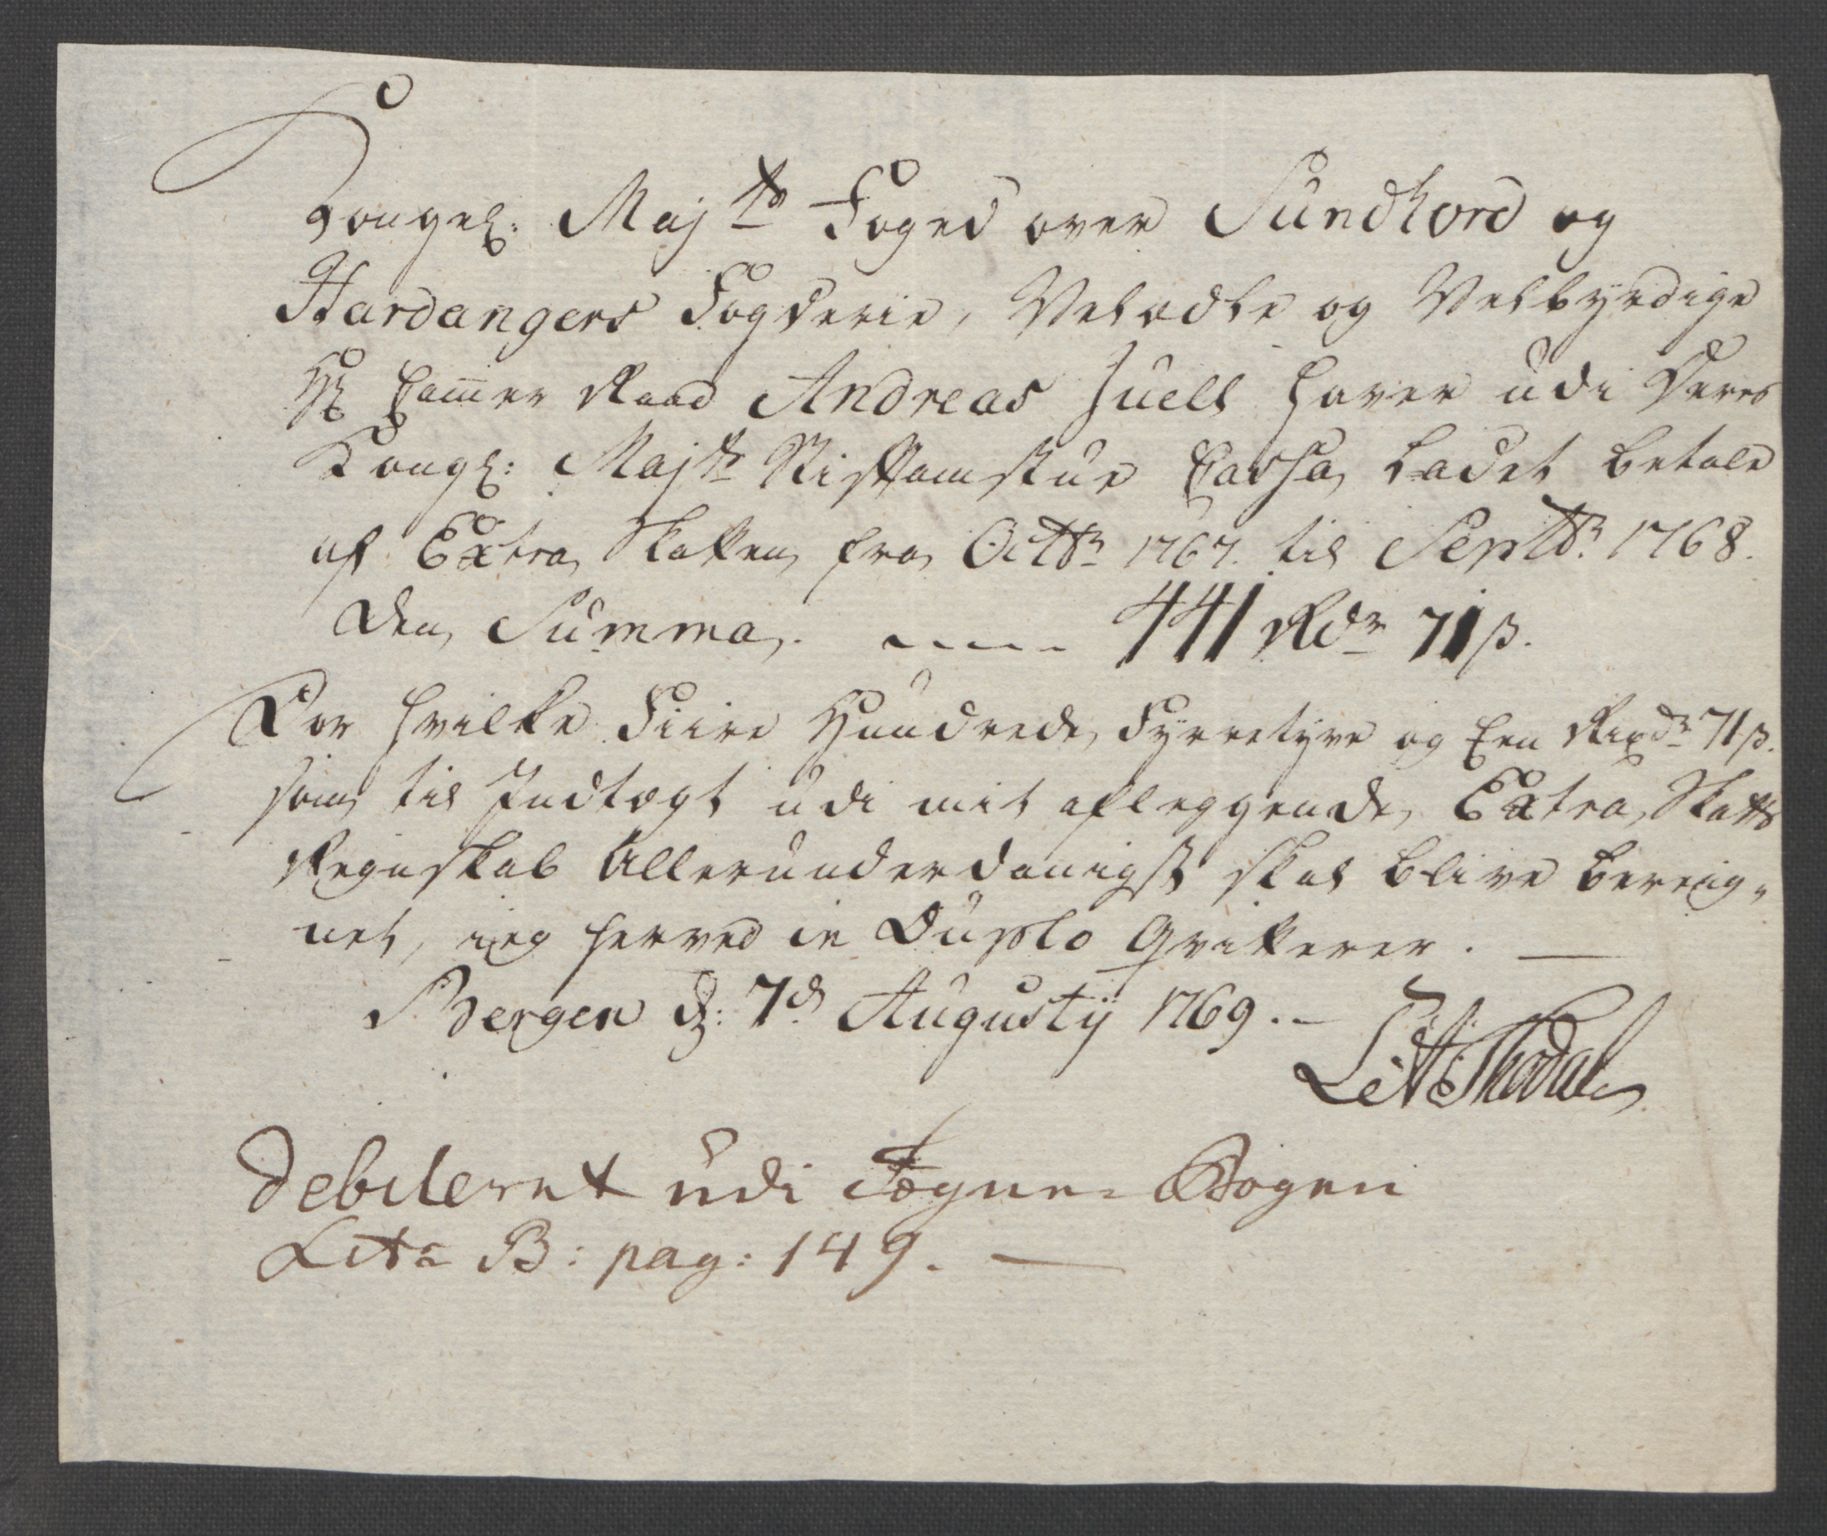 Kongel: Majts Foged over Sundhord og
Hardangers Fogderie, Velædle og Velbyrdige
Hr Cammer Raad Andreas Juell haver udi Deres
Kongl: Majts Stiftamstue Cassa ladet betale
af Extra Skatten fra Octbr 1767. til Septbr 1768.
Den Summa. 441 Rdr 71 ß.
For hvilke Fiire Hundrede, Fyrretyve og Een Rixdr 71 ß.
som til Indtægt udi mit aflæggende Extra Skatts
Regnskab Allerunderdanigst skal blive bereig-
net, ieg herved in Duplo Qvitterer.
Bergen d: 7d Augustij 1769.
Debiteret udi Bogen
Litr B: pag: 149.